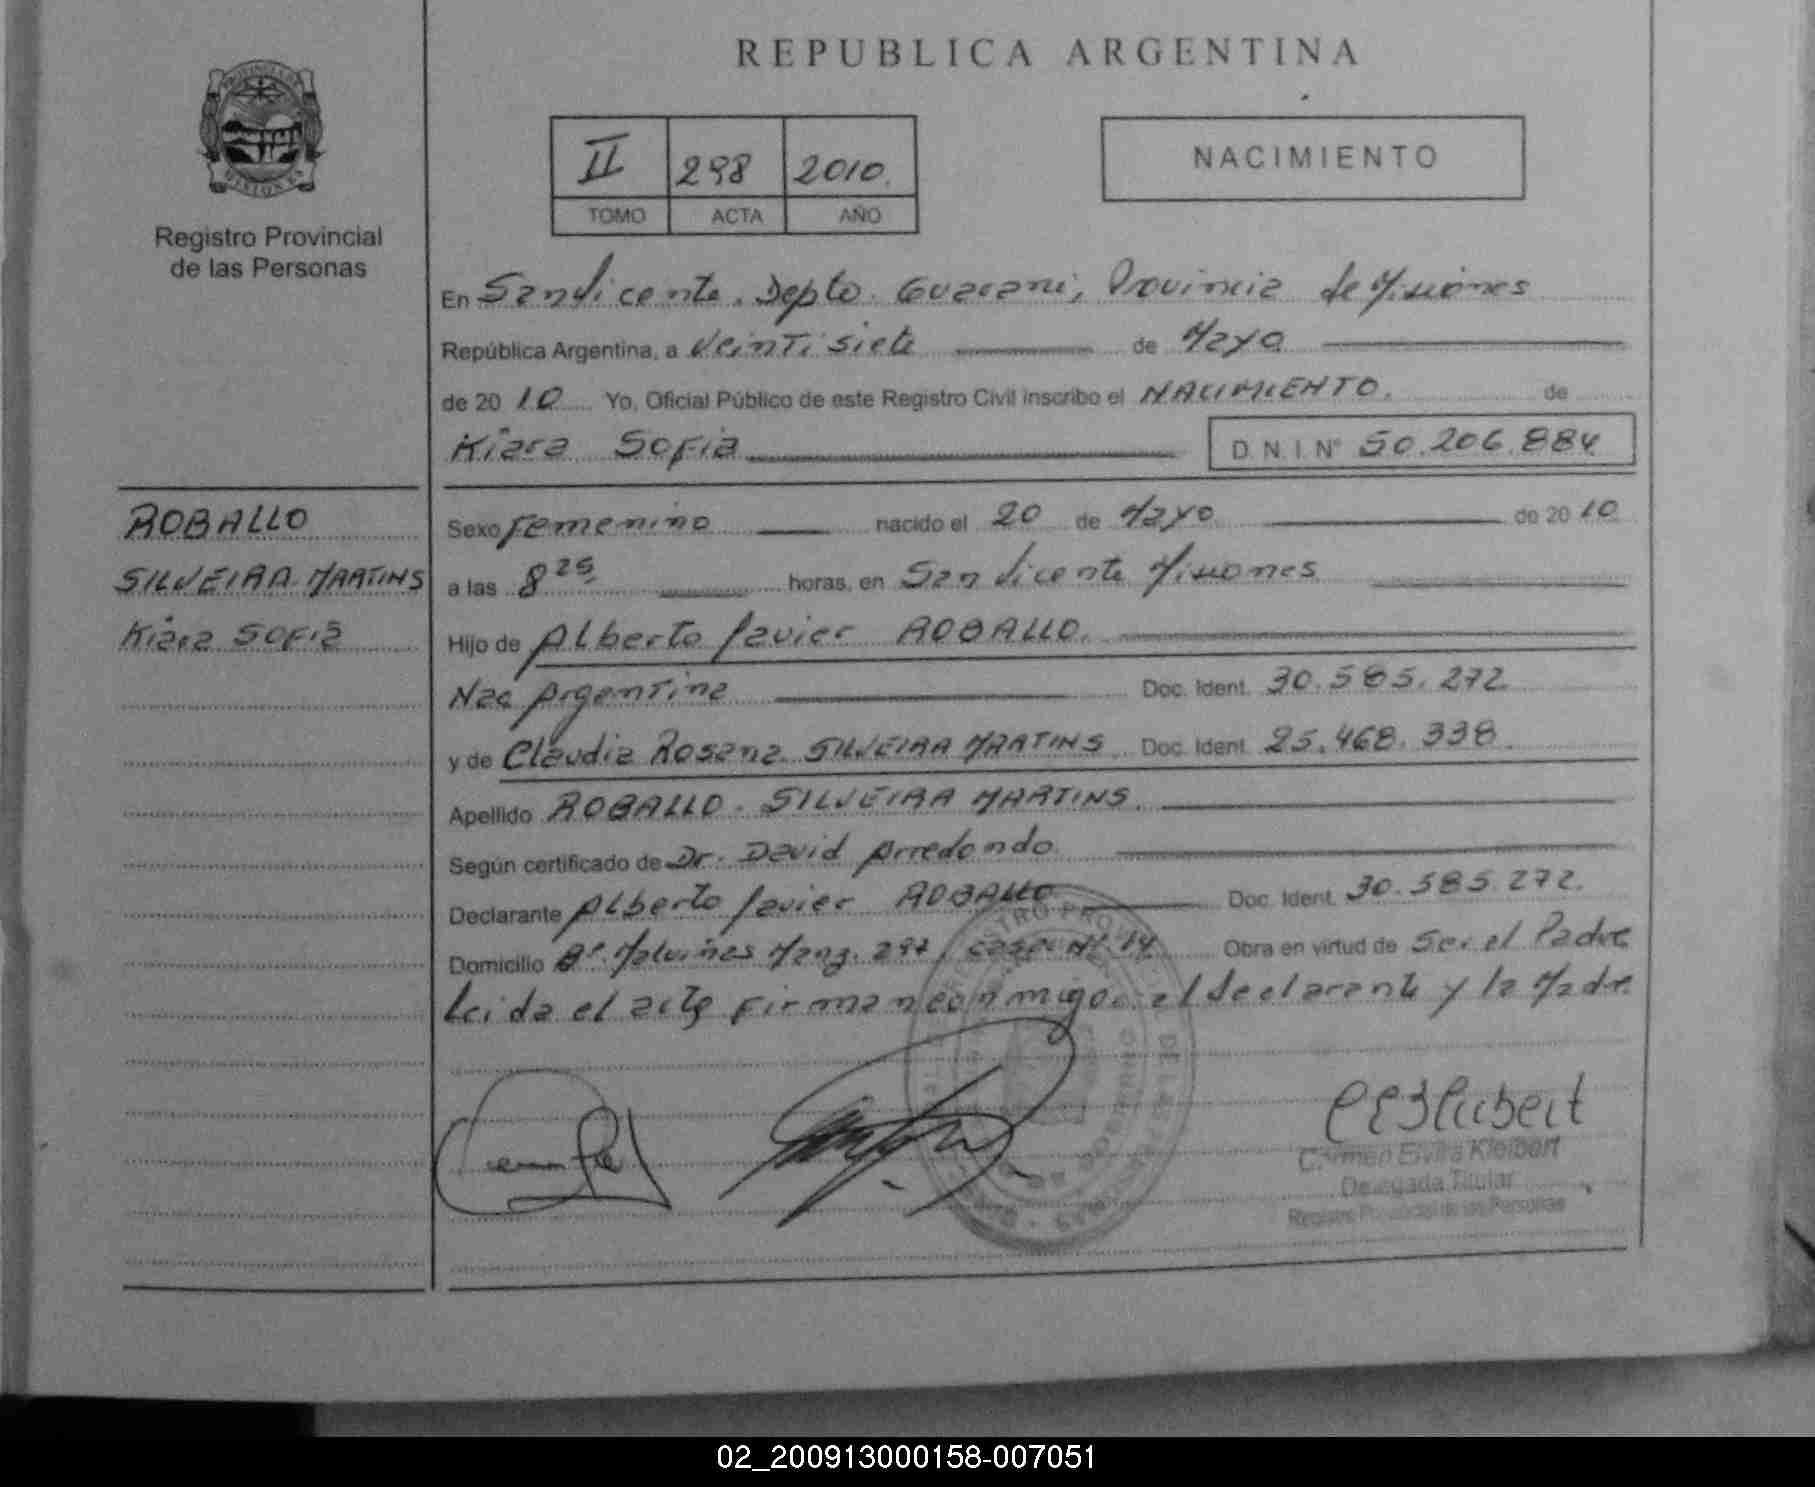 REPUBLICA ARGENTINA
PROVINCIA DE
MISIONES
Registro Provincial
de las Personas
II 298 2010.
TOMO ACTA AÑO
NACIMIENTO
En San Vicente. Depto. Guarani, Provincia de Misiones
República Argentina, a veinti siete de Mayo
de 20 10 Yo, Oficial Público de este Registro Civil inscribo el NACIMIENTO. de
Kiara Sofia D. N. I. N° 50.206.884
ROBALLO
SILVEIRA MARTINS
Kiara Sofia
Sexo Femenino nacido el 20 de Mayo de 20 10
a las 8 25 horas, en San Vicente Misiones
Hijo de Alberto Javier ROBALLO.
Nac Argentina Doc. Ident. 30.585.272
y de Claudia Rosana SILVEIRA MARTINS Doc. Ident. 25.468.338
Apellido ROBALLO. SILVEIRA MARTINS.
Según certificado de Dr. David Arredondo
Declarante Alberto Javier ROBALLO Doc. Ident. 30.585.272.
Domicilio B° Malvinas Manz. 297, casa N° 14 Obra en virtud de Ser el Padre
Leida el acta firman conmigo: el declarante y la Madre
Carmen Elvira Kleibert
Delegada Titular
Registro Provincial de las Personas
02_200913000158-007051